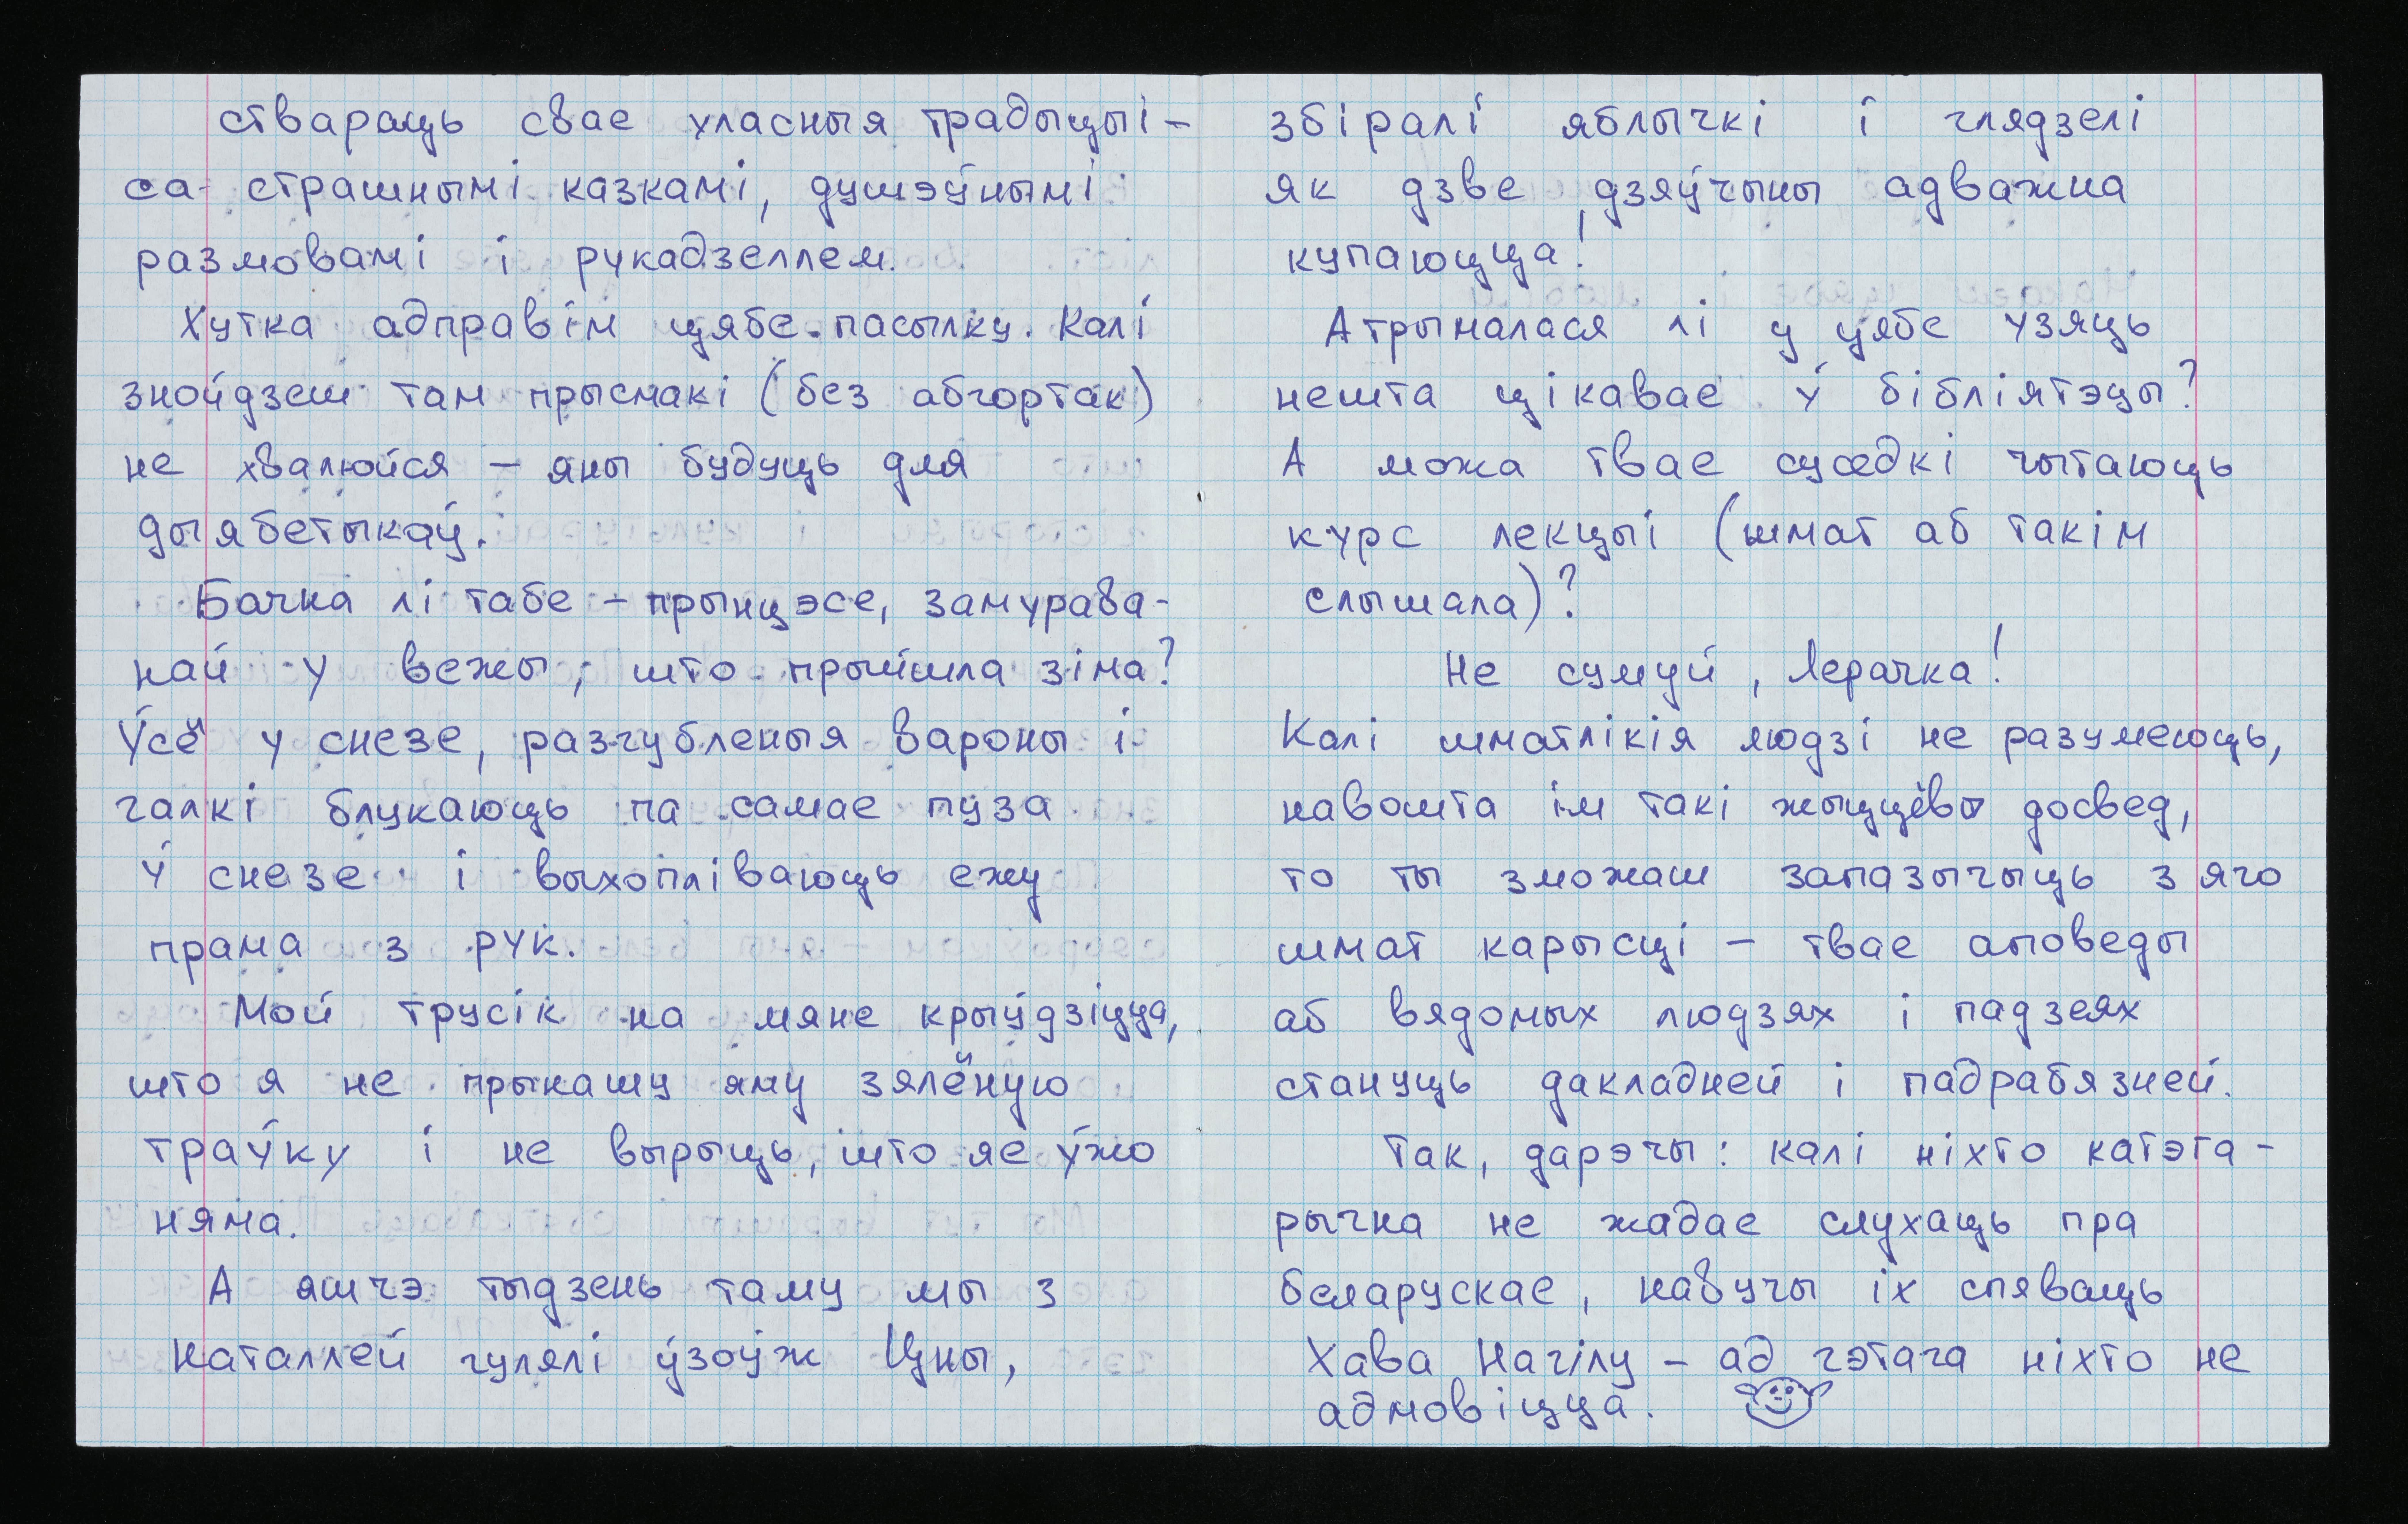 ствараць свае уласныя традыцыі -
са страшнымі казкамі, душэўнымі
размовамі і рукадзеллем.
Хутка адправім цябе пасылку. Калі
знойдзеш там прысмакі (без абгортак)
не хвалюйся – яны будуць для
дыябетыкаў.
Бачна лі табе – прынцэсе, замурава-
най у вежы, што прыйшла зіма?
Ўсё у снезе, разгубленыя вароны і
галкі блукаюць па самае пуза
ў снезе і выхопліваюць ежу
прама з рук.
Мой трусік на мяне крыўдзіцца,
што я не прынашу яму зялёную
траўку і не вырыць, што яе ўжо
няма.
А яшчэ тыдзень таму мы з
Наталлей гулялі ўзоўж Цны,
збіралі яблычкі і глядзелі
як дзве дзяўчыны адважна
купаюцца!
Атрымалася лі у цябе узяць
нешта цікавае ў бібліятэцы?
А можа твае суседкі чытаюць
курс лекцыі (шмат аб такім
слышала)?
Не сумуй, Лерачка!
Калі шматлікія людзі не разумеюць,
навошта ім такі жыццёвы досвед,
то ты зможаш запазычыць з яго
шмат карысці – твае аповеды
аб вядомых людзях і падзеях
стануць дакладней і падрабязней.
Так, дарэчы: калі ніхто катэга-
рычна не жадае слухаць пра
беларускае, навучы іх спяваць
Хава Нагілу – ад гэтага ніхто не
адмовіцца.